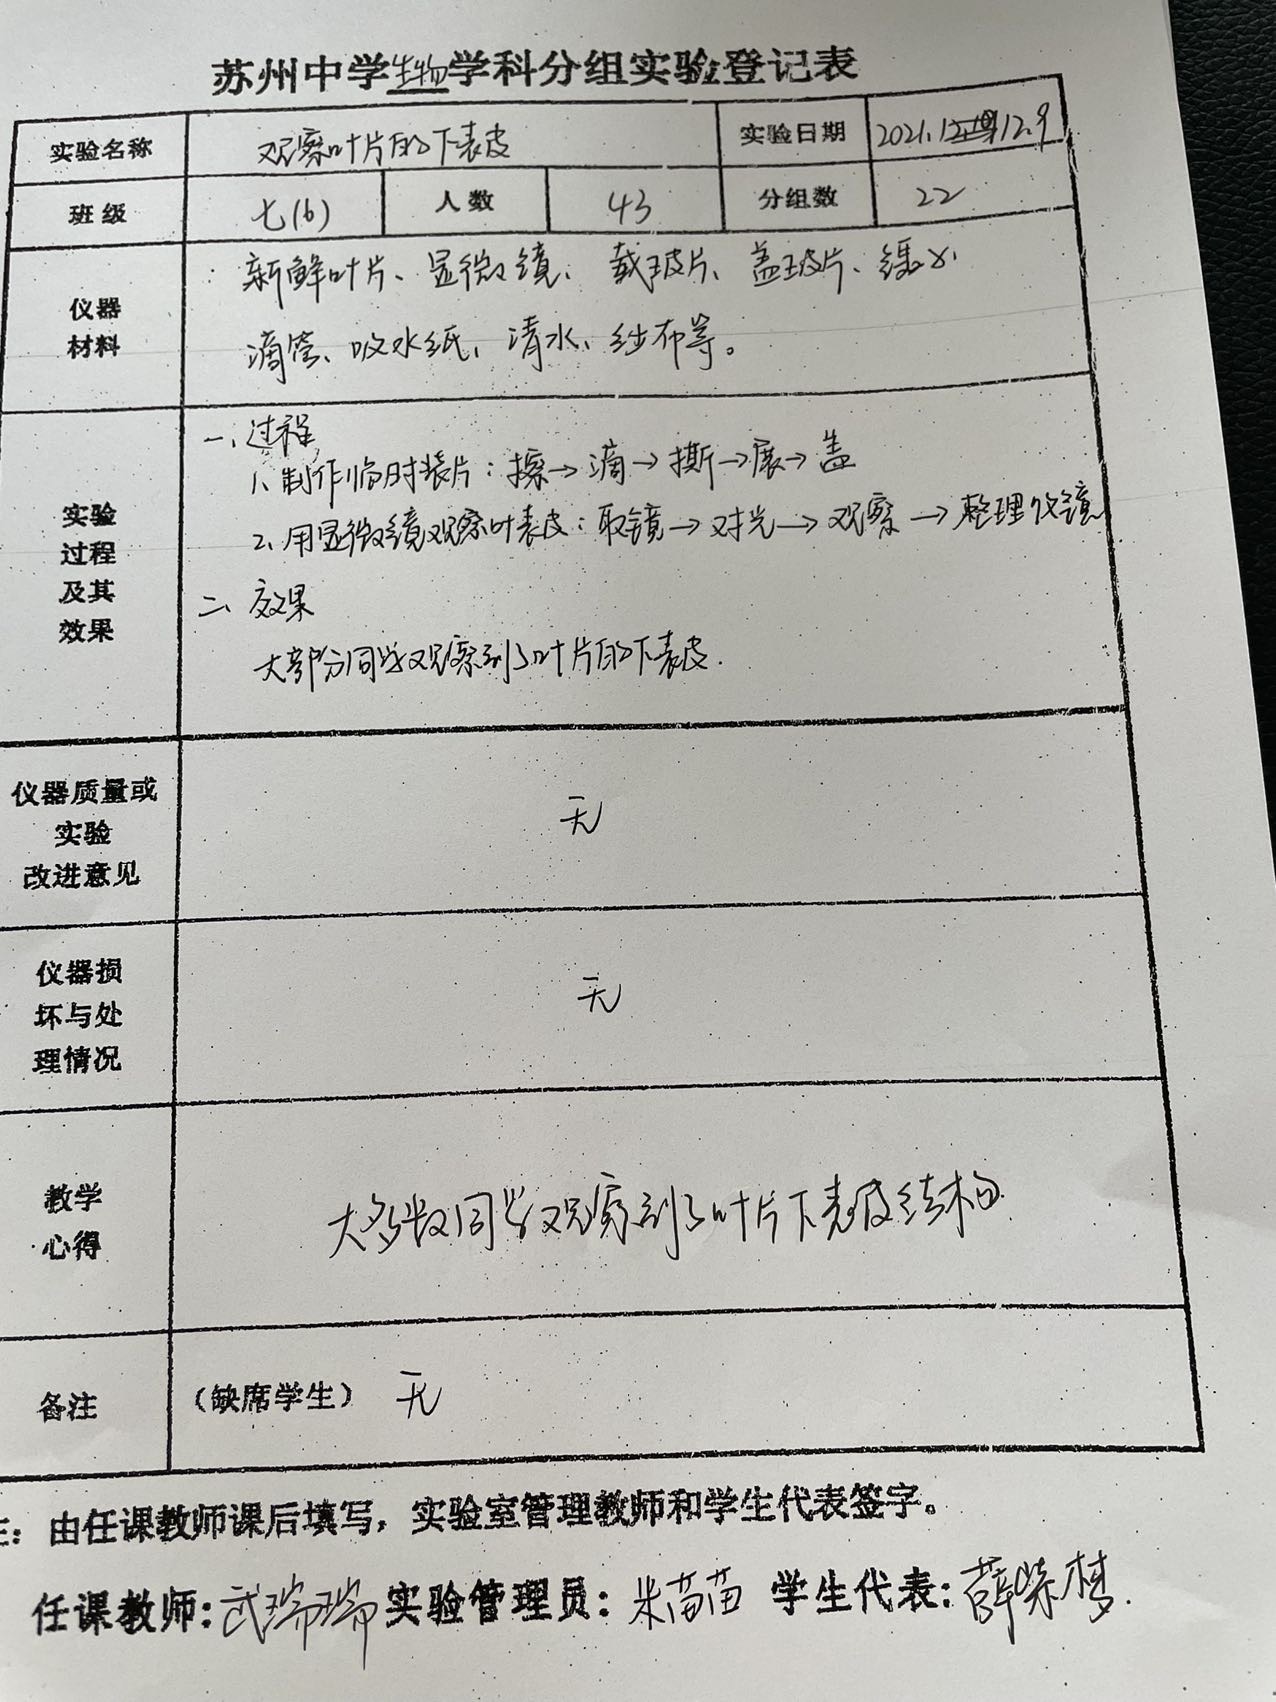 苏州中学生物学科分组实验登记表
实验名称 观察叶片的下表皮 实验日期 2021.12.9
班级 七(6) 人数 43 分组数 22
仪器材料
新鲜叶片、显微镜、载玻片、盖玻片、镊子、
滴管、吸水纸、清水、纱布等。
实验过程及其效果
一、过程
1、制作临时装片：擦→滴→撕→展→盖
2、用显微镜观察叶表皮：取镜→对光→观察→整理收镜
二、效果
大部分同学观察到了叶片的下表皮.
仪器质量或实验改进意见 无
仪器损坏与处理情况 无
教学心得 大多数同学观察到了叶片下表皮结构.
备注 （缺席学生） 无
注：由任课教师课后填写，实验室管理教师和学生代表签字。
任课教师：武瑞瑞 实验管理员：米苗苗 学生代表：薛紫梦.